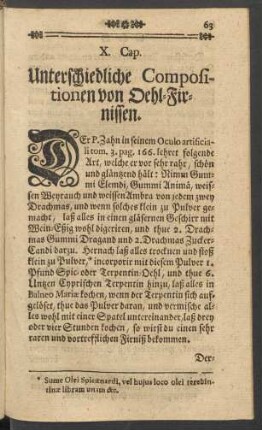 63
X. Cap.
Unterschiedliche Composi-
tionen von Oehl-Fir-
nissen.
DEr P. Zahn in seinem Oculo artificia-
li tom. 3. pag. 166. lehret folgende
Art, welche er vor sehr rahr, schön
und gläntzend hält: Nimm Gum-
mi Elemdi, Gummi Animä, weis-
sen Weyrauch und weissen Ambra von jedem zwey
Drachmas, und wenn solches klein zu Pulver ge-
macht, laß alles in einen gläsernen Geschirr mit
Wein-Eßig wohl digeriren, und thue 2. Drach-
mas Gummi Dragand und 2. Drachmas Zucker-
Candi darzu. Hernach laß alles trocknen und stoß
klein zu Pulver,* incorporir mit diesem Pulver 1.
Pfund Spic- oder Terpentin-Oehl, und thue 6.
Untzen Cyprischen Terpentin hinzu, laß alles in
Balneo Mariæ kochen, wenn der Terpentin sich auf-
gelöset, thue das Pulver daran, und vermische al-
les wohl mit einer Spatel untereinander, laß drey
oder vier Stunden kochen, so wirst du einen sehr
raren und vortrefflichen Firniß bekommen.
Der-
* Sume Olei Spicænardi, vel hujus loco olei terebin-
tinæ libram unam &c.